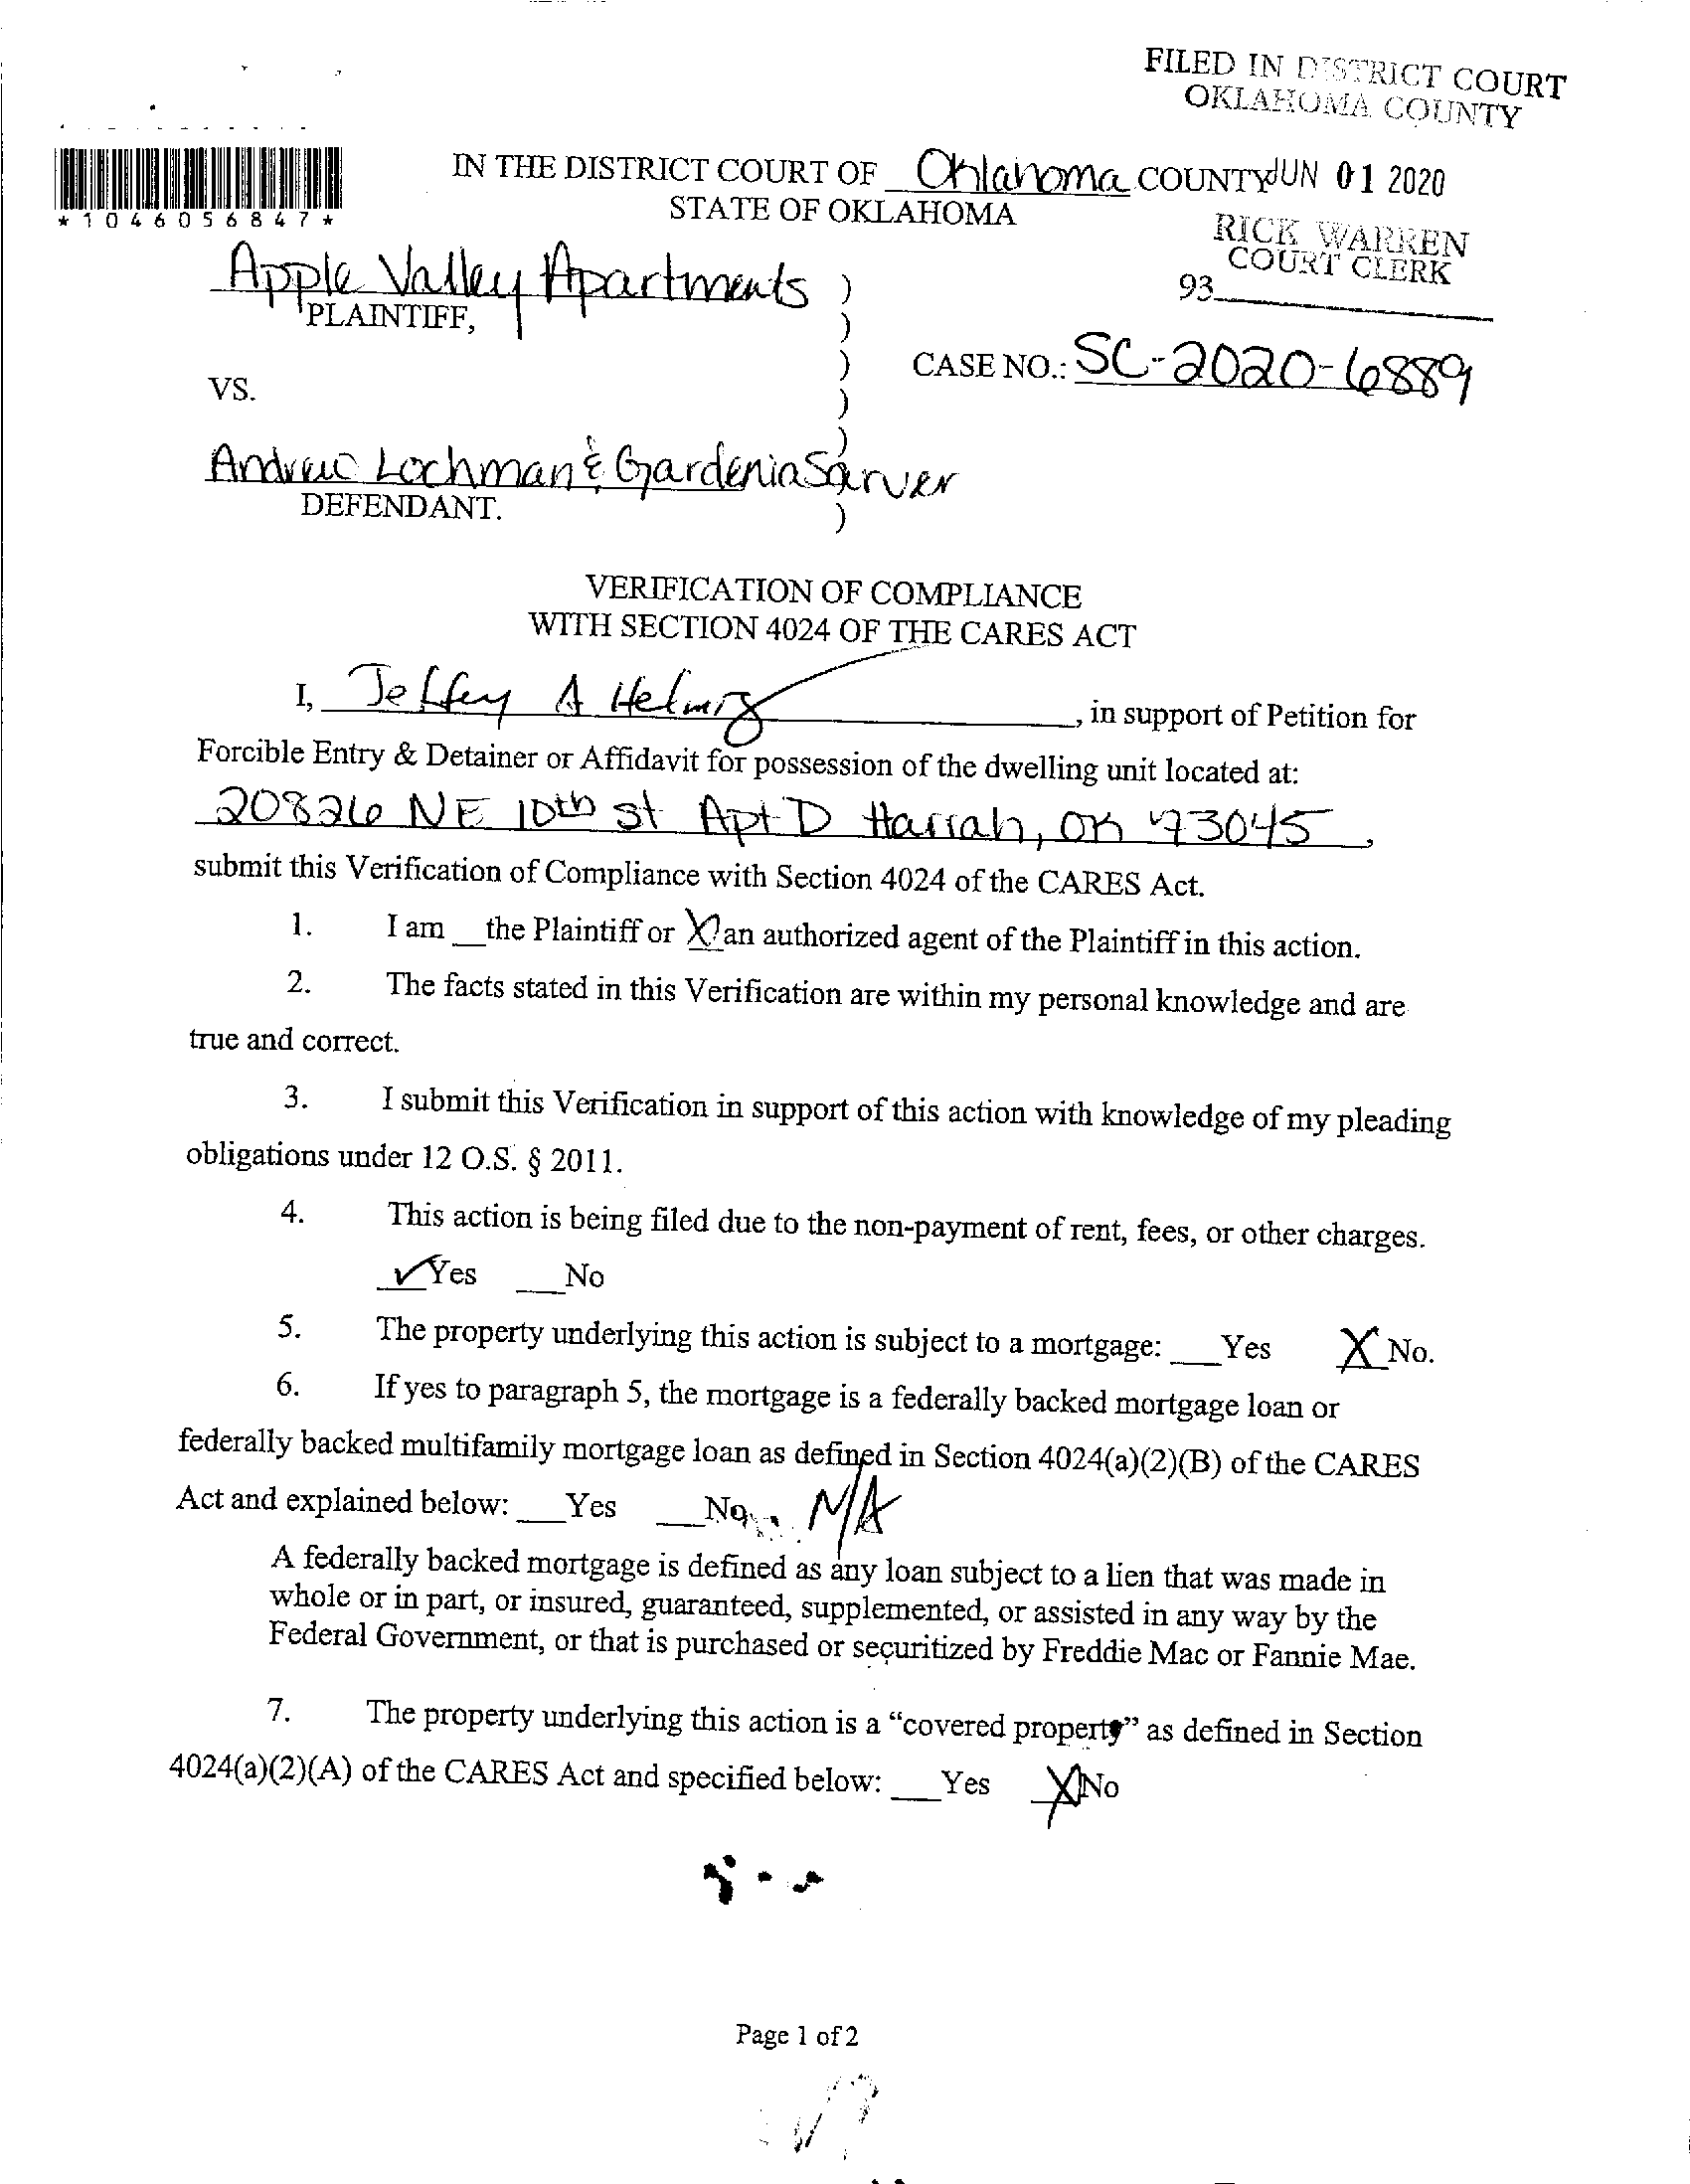 FILED IN DISTRICT COURT
OKLAHOMA COUNTY
IN THE DISTRICT COURT OF Oklahoma COUNTY JUN 01 2020
STATE OF OKLAHOMA
*1046056847*
RICK WARREN
COURT CLERK
93
Apple Valley Apartments )
PLAINTIFF, )
) CASE NO.: SC-2020-6889
VS. )
)
Andrew Lochman & Gardenia Sarver
DEFENDANT. )
VERIFICATION OF COMPLIANCE
WITH SECTION 4024 OF THE CARES ACT
I, Jeffey A , in support of Petition for
Forcible Entry & Detainer or Affidavit for possession of the dwelling unit located at:
20826 NE 10th St Apt D Harrah, OK 73045,
submit this Verification of Compliance with Section 4024 of the CARES Act.
1. I am __the Plaintiff or X an authorized agent of the Plaintiff in this action.
2. The facts stated in this Verification are within my personal knowledge and are
true and correct.
3. I submit this Verification in support of this action with knowledge of my pleading
obligations under 12 O.S. § 2011.
4. This action is being filed due to the non-payment of rent, fees, or other charges.
✓Yes ___No
5. The property underlying this action is subject to a mortgage: ___Yes X No.
6. If yes to paragraph 5, the mortgage is a federally backed mortgage loan or
federally backed multifamily mortgage loan as defined in Section 4024(a)(2)(B) of the CARES
Act and explained below: ___Yes ___No N/A
A federally backed mortgage is defined as any loan subject to a lien that was made in
whole or in part, or insured, guaranteed, supplemented, or assisted in any way by the
Federal Government, or that is purchased or securitized by Freddie Mac or Fannie Mae.
7. The property underlying this action is a “covered property” as defined in Section
4024(a)(2)(A) of the CARES Act and specified below: ___Yes X No
Page 1 of 2